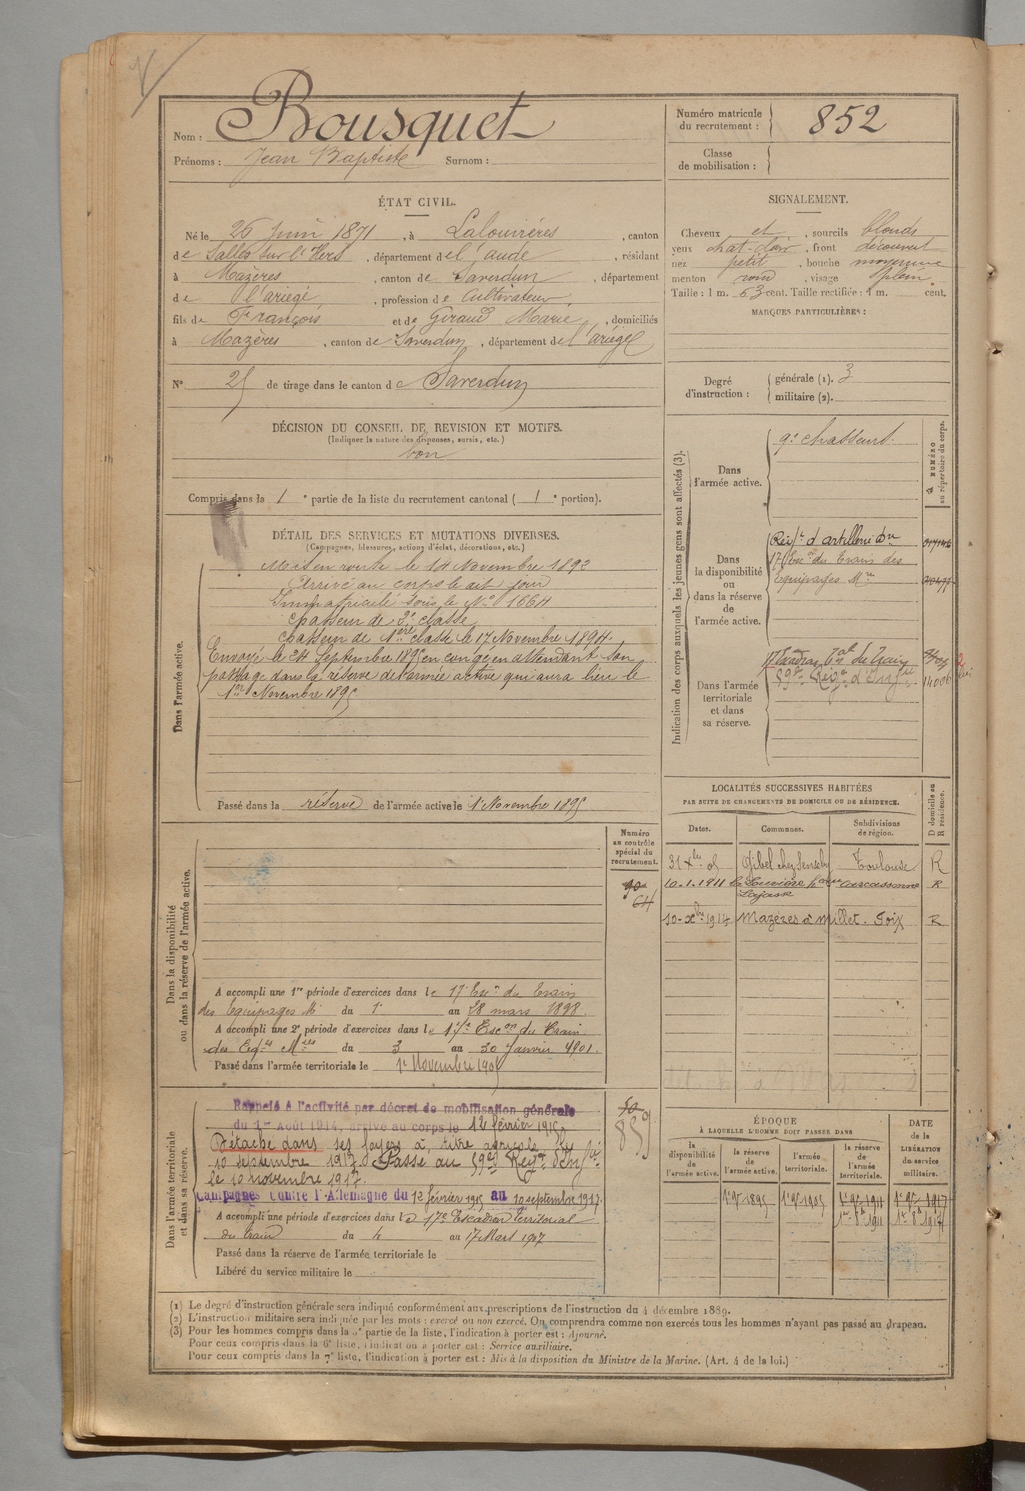 Nom : Bousquet
Prénoms : Jean Baptiste Surnom :
Numéro matricule du recrutement : 852
Classe de mobilisation :
ÉTAT CIVIL.
Né le 26 Juin 1871, à Lalouvières, canton
de Salles sur l'Hers, département de l'aude, résidant
à Mazères, canton de Saverdun, département
de l'ariège, profession de Cultivateur,
fils de François et de Géraud Marie, domiciliés
à Mazères, canton de Saverdun, département de l'ariège
N° 25 de tirage dans le canton de Saverdun
SIGNALEMENT.
Cheveux et, sourcils blonds
yeux chat-clair, front découvert
nez petit, bouche moyenne
menton rond, visage plein
Taille : 1 m. 63 cent. Taille rectifiée : 1 m. cent.
MARQUES PARTICULIÈRES :
Degré d'instruction : générale (1). 3
militaire (2).
DÉCISION DU CONSEIL DE REVISION ET MOTIFS.
(Indiquer la nature des dispenses, sursis, etc.)
bon
Compris dans la 1e partie de la liste du recrutement cantonal (1e portion).
DÉTAIL DES SERVICES ET MUTATIONS DIVERSES.
(Campagnes, blessures, actions d'éclat, décorations, etc.)
Dans l'armée active.
Mis en route le 14 Novembre 1892
Arrivé au corps le dit jour
Immatriculé sous le No 1664
chasseur de 2e classe
chasseur de 1ère classe le 17 Novembre 1894.
Envoyé le 24 Septembre 1895 en congé en attendant son
passage dans la réserve de l'armée active qui aura lieu le
1er Novembre 1895
Passé dans la réserve de l'armée active le 1 Novembre 1895
Indication des corps auxquels les jeunes gens sont affectés (3).
NUMÉRO au répertoire du corps.
Dans l'armée active.
9e chasseurs.
Dans la disponibilité ou dans la réserve de l'armée active.
Regt d'artillerie
17 Esc. du Train des
Equipages Mre
Dans l'armée territoriale et dans sa réserve.
17 Escadron Tal du Train
59e Regt d'Infie
14006
LOCALITÉS SUCCESSIVES HABITÉES
PAR SUITE DE CHANGEMENTS DE DOMICILE OU DE RÉSIDENCE.
Dates. Communes. Subdivisions de région. D domicile ou R résidence.
31 Xbre 05 Gibel Toulouse R
10.1.1911 Carcassonne R
10-Xbre 1914 Mazères à Millet. Foix R
Dans la disponibilité ou dans la réserve de l'armée active.
Numéro au contrôle spécial du recrutement.
A accompli une 1re période d'exercices dans le 17 Esc. du Train
des Equipages M du 1er au 28 mars 1898.
A accompli une 2e période d'exercices dans le 17e Escon du Train
des Eqges Mres du 3 au 30 Janvier 1901.
Passé dans l'armée territoriale le 1er Novembre 1905
Dans l'armée territoriale et dans sa réserve.
Rappelé à l'activité par décret de mobilisation générale
du 1er Août 1914, arrivé au corps le 12 février 1915.
Détaché dans ses foyers à titre agricole le
10 septembre 1917. Passé au 59e Regt d'Infie
le 10 novembre 1917.
Campagnes contre l'Allemagne du 12 février 1915 au 10 septembre 1917.
A accompli une période d'exercices dans le 17e Escadron Territorial
du Train du 4 au 17 Mars 1907
Passé dans la réserve de l'armée territoriale le
Libéré du service militaire le
859
ÉPOQUE
À LAQUELLE L'HOMME DOIT PASSER DANS
la disponibilité de l'armée active. la réserve de l'armée active. l'armée territoriale. la réserve de l'armée territoriale. DATE de la LIBÉRATION du service militaire.
1er 9bre 1895 1er 9bre 1905 1er 9bre 1911 1er 9bre 1917
1er 8bre 1911 1er 8bre 1917
(1) Le degré d'instruction générale sera indiqué conformément aux prescriptions de l'instruction du 4 décembre 1889.
(2) L'instruction militaire sera indiquée par les mots : exercé ou non exercé. On comprendra comme non exercés tous les hommes n'ayant pas passé au drapeau.
(3) Pour les hommes compris dans la 5e partie de la liste, l'indication à porter est : Ajourné.
Pour ceux compris dans la 6e liste, l'indication à porter est : Service auxiliaire.
Pour ceux compris dans la 7e liste, l'indication à porter est : Mis à la disposition du Ministre de la Marine. (Art. 4 de la loi.)